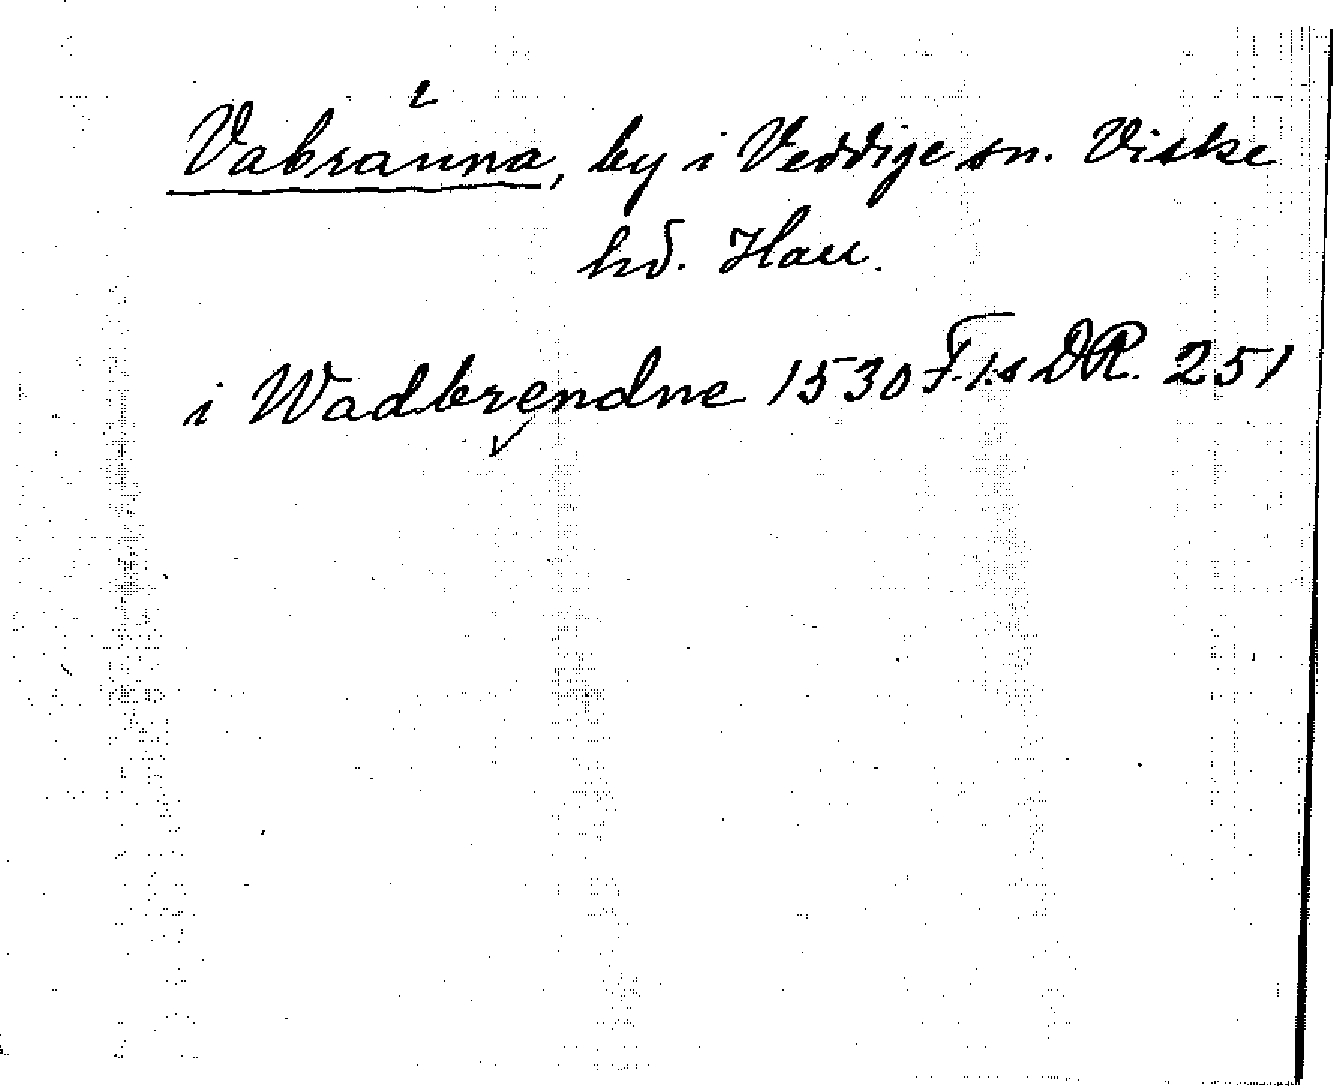 Vabränna, by i Veddige sn. Viske
hd. Hall.
i Wadbrendne 1530 F.I:s DR. 251